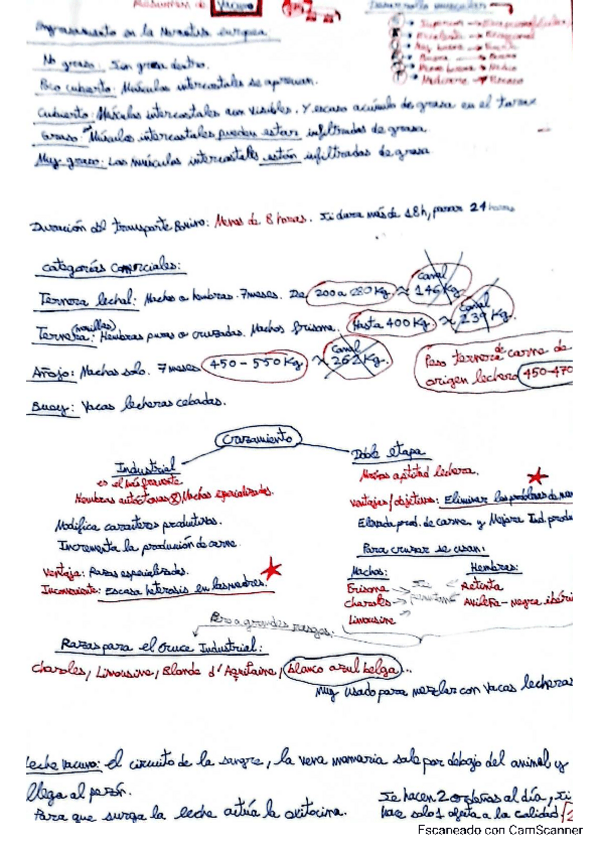 Resumen de Vacuno
Desarrollo muscular
Superior
Excelente → Excepcional
Muy buena
Buena → Buena
Menos buena → Media
Mediocre → Escaso
Engrasamiento en la Normativa europea
No graso: Sin grasa dentro.
Poco cubierto: Músculos intercostales se aprecian.
Cubierto: Músculos intercostales aun visibles. Y escaso acúmulo de grasa en el torax
Graso: Músculos intercostales pueden estar infiltradas de grasa.
Muy graso: Los músculos intercostales están infiltradas de grasa
Duración del transporte Bovino: Menos de 8 horas. Si dura más de 18h, parar 24 horas
Categorías Comerciales:
Ternera lechal: Machos o hembras. 7meses. De 200 a 280 Kg ≈ Canal 146 Kg.
Ternera: (novillas) Hembras puras o cruzadas. Machos frisona. Hasta 400 Kg ≈ Canal 239 Kg.
Añojo: Machos solo. 7 meses 450 - 550 Kg ≈ Canal 262 Kg.
Peso ternera de carne de
origen lechero 450-470
Buey: Vacas lecheras cebadas.
Cruzamiento
Industrial
es el más frecuente
Hembras autóctonas Ⓧ Machos especializados.
Modifica caracteres productivos.
Incrementa la producción de carne.
Ventaja: Razas especializadas.
Inconveniente: Escasa heterosis en las madres.
Doble etapa
Menos aptitud lechera.
Ventajas/objetivos: Eliminar los problemas de
Elevada prod. de carne y Mejora Ind. produ
Para cruzar se usan:
Machos: Hembras:
Frisona Retinta
Charoles Avileña-negra ibéri
Limousine
Pero a grandes rasgos.
Razas para el Cruce Industrial:
Charoles, Limousine, Blonde d'Aquitaine, blanco azul belga...
Muy usado para mezclar con vacas lecheras
Leche Vacuno: el circuito de la sangre, la vena mamaria sale por debajo del animal y
llega al pezón.
Para que surga la leche actúa la oxitocina.
Se hacen 2 ordeños al día, Si
hace solo 1 afecta a la calidad
Escaneado con CamScanner